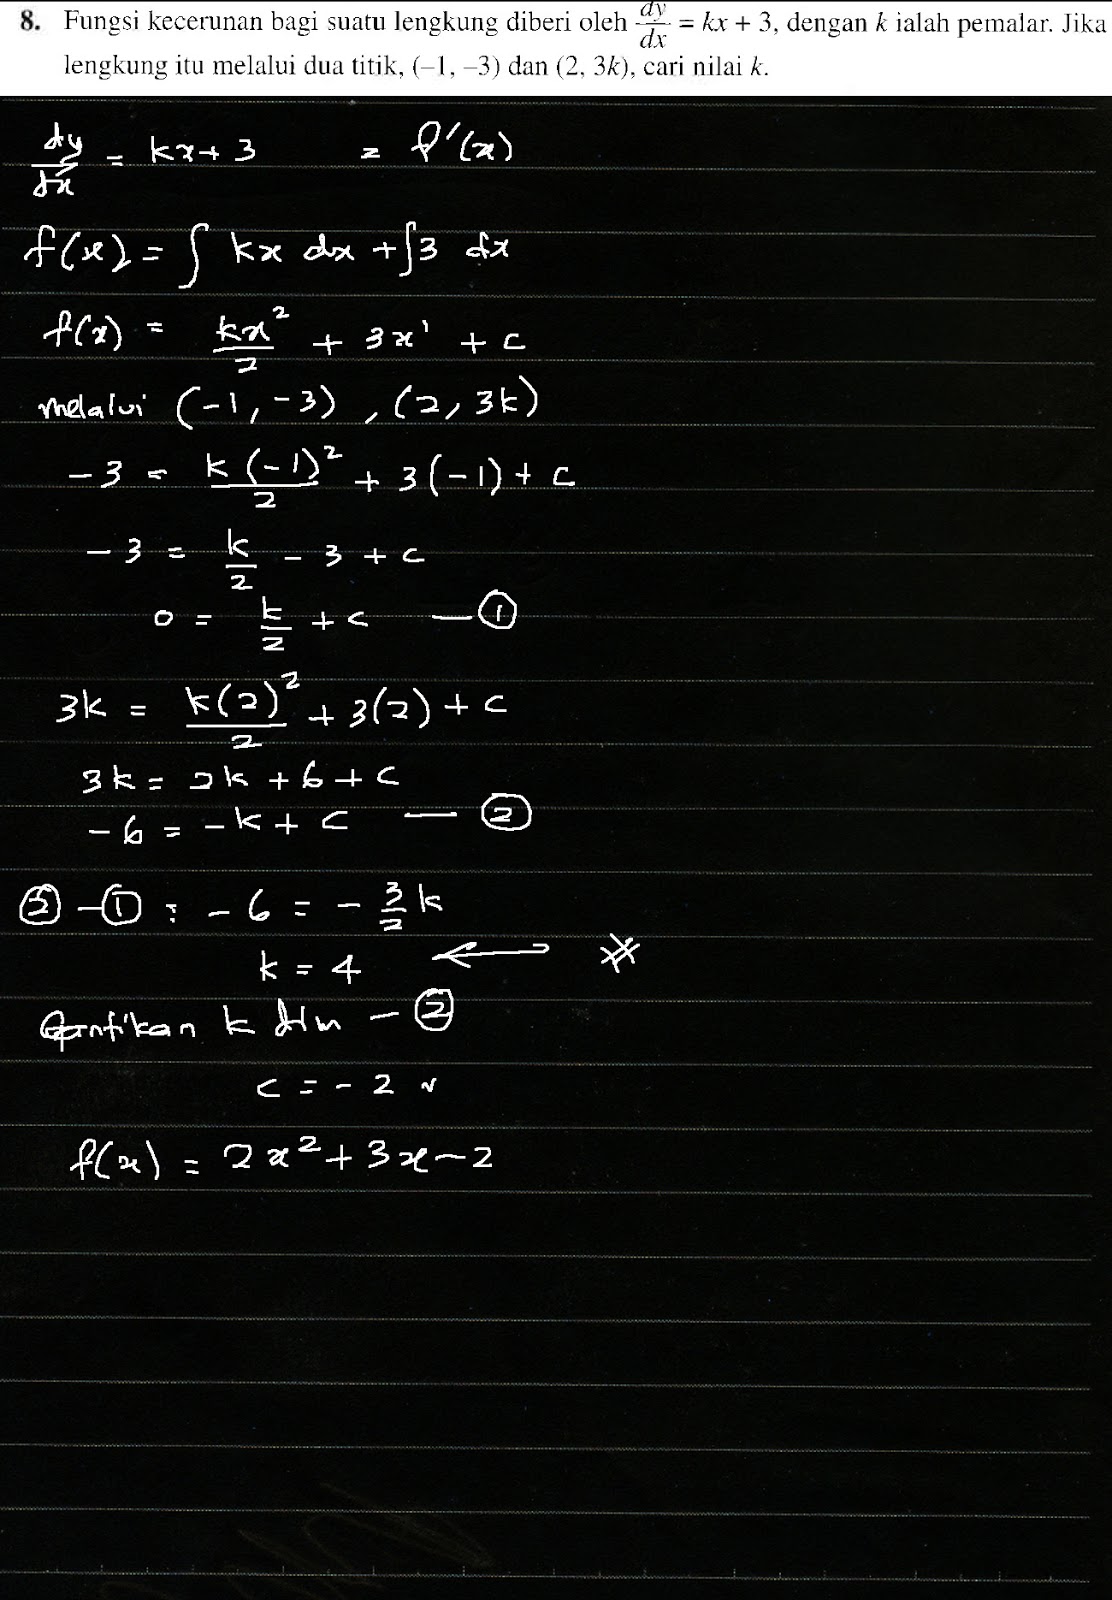 8. Fungsi kecerunan bagi suatu lengkung diberi oleh dy/dx = kx + 3, dengan k ialah pemalar. Jika
lengkung itu melalui dua titik, (–1, –3) dan (2, 3k), cari nilai k.
dy/dx = kx + 3 = f'(x)
f(x) = ∫ kx dx + ∫3 dx
f(x) = kx²/2 + 3x¹ + c
melalui (-1, -3), (2, 3k)
-3 = k(-1)²/2 + 3(-1) + c
-3 = k/2 - 3 + c
0 = k/2 + c — ①
3k = k(2)²/2 + 3(2) + c
3k = 2k + 6 + c
-6 = -k + c — ②
② - ① : -6 = - 3/2 k
k = 4 ←
Gantikan k dlm - ②
c = -2
f(x) = 2x² + 3x - 2